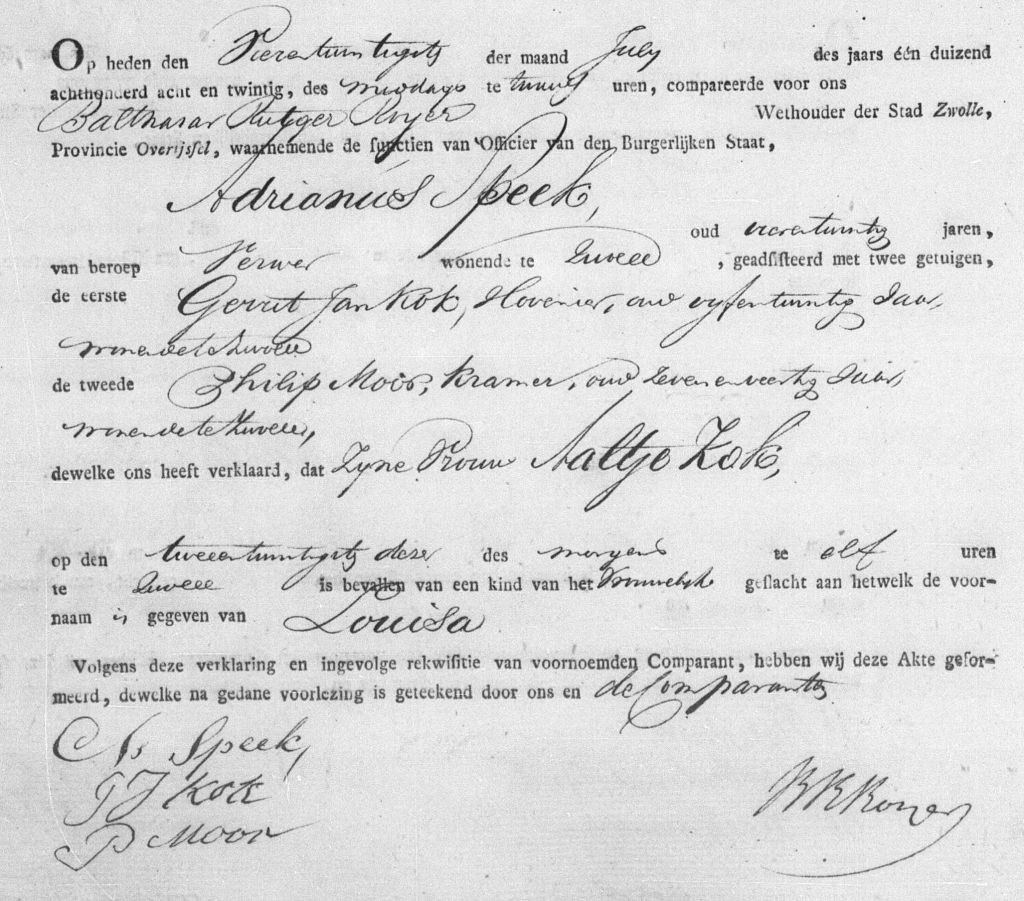 Op heden den Vierentwintigste der maand July des jaars één duizend
achthonderd acht en twintig, des middags te twaalf uren, compareerde voor ons
Balthasar Rutger Royer Wethouder der Stad Zwolle,
Provincie Overijssel, waarnemende de functien van Officier van den Burgerlijken Staat,
Adrianus Speek,
oud vierentwintig jaren,
van beroep Verwer wonende te Zwolle, geadsisteerd met twee getuigen,
de eerste Gerrit Jan Kok, Hovenier, oud vyfentwintig Jaar,
wonende te Zwolle
de tweede Philip Moor, kramer, oud zevenenveertig Jaar,
wonende te Zwolle,
dewelke ons heeft verklaard, dat Zyne Vrouw Aaltje Kok,
op den tweeentwintigste dezer des morgens te elf uren
te Zwolle is bevallen van een kind van het Vrouwelijk geslacht aan hetwelk de voor-
naam is gegeven van Louisa
Volgens deze verklaring en ingevolge rekwisitie van voornoemden Comparant, hebben wij deze Akte gefor-
meerd, dewelke na gedane voorlezing is geteekend door ons en de Comparanten
Speek,
G J Kok
P Moor
B R Royer